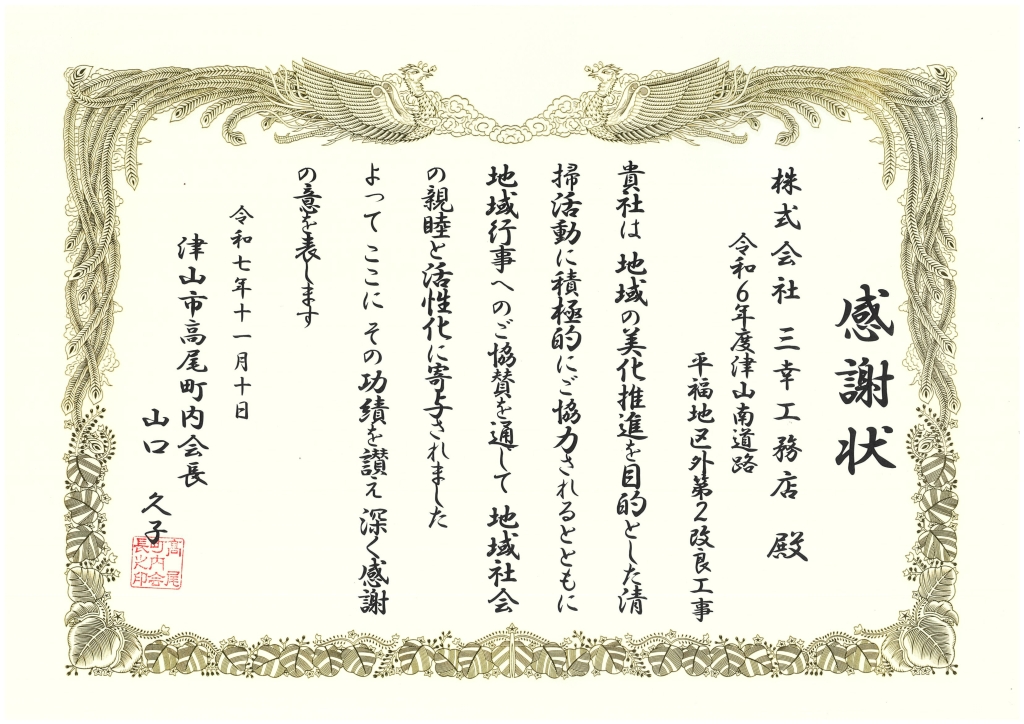 感謝状
株式会社 三幸工務店 殿
令和6年度津山南道路
平福地区外第2改良工事
貴社は 地域の美化推進を目的とした清
掃活動に積極的にご協力されるとともに
地域行事へのご協賛を通して 地域社会
の親睦と活性化に寄与されました
よって ここに その功績を讃え 深く感謝
の意を表します
令和七年十一月十日
津山市高尾町内会長
山口 久子
高尾
町内会
長之印